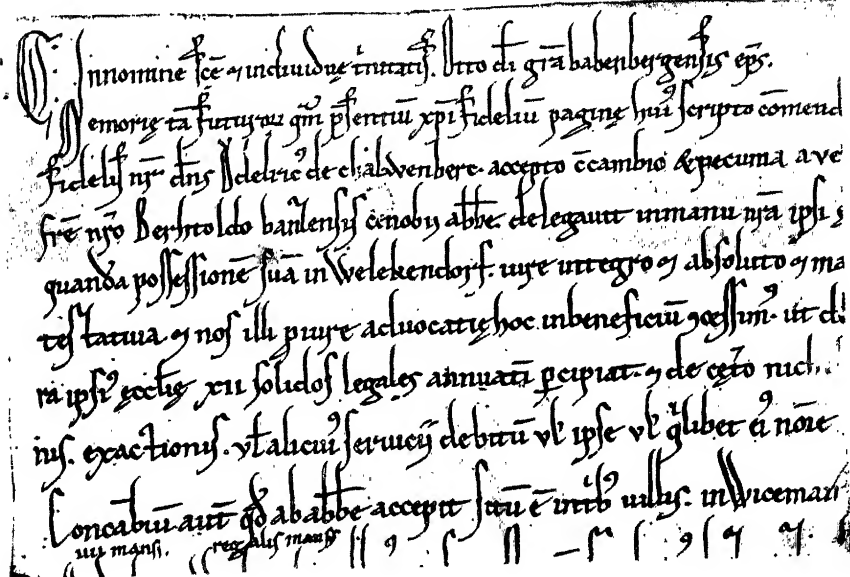 C. In nomine sce ⁊ individuę trinitatis. Otto di gra babenbergensis eps.
Memorię tā futurorū qm psentiū xpi fideliū paginę huiꝰ scripto cōmend
fidelis nr dns Ŏdelricꝰ de chalwenberc. accepto ccambio & pecunia a ve
fre nro Berhtoldo banzensis cenobii abbe. delegavit in manu nra ipsi
quandā possessionē suā in Welekendorf. iure integro ⁊ absoluto ⁊ ma
testativa. ⁊ nos illi p iure advocatię hoc in beneficiū ꝯcessimꝰ. ut d
ra ipsiꝰ ęcclię xii solidos legales annuatī pcipiat. ⁊ de cętō nich
ius. exactionis. vl aliciuiꝰ servicii debitū vl ipse vl qlibet eiꝰ noīe
Concābiū aut qd ab abbe accepit sitū ē in trib villis. in Wiceman
iiii mansi. regalis mansꝰ